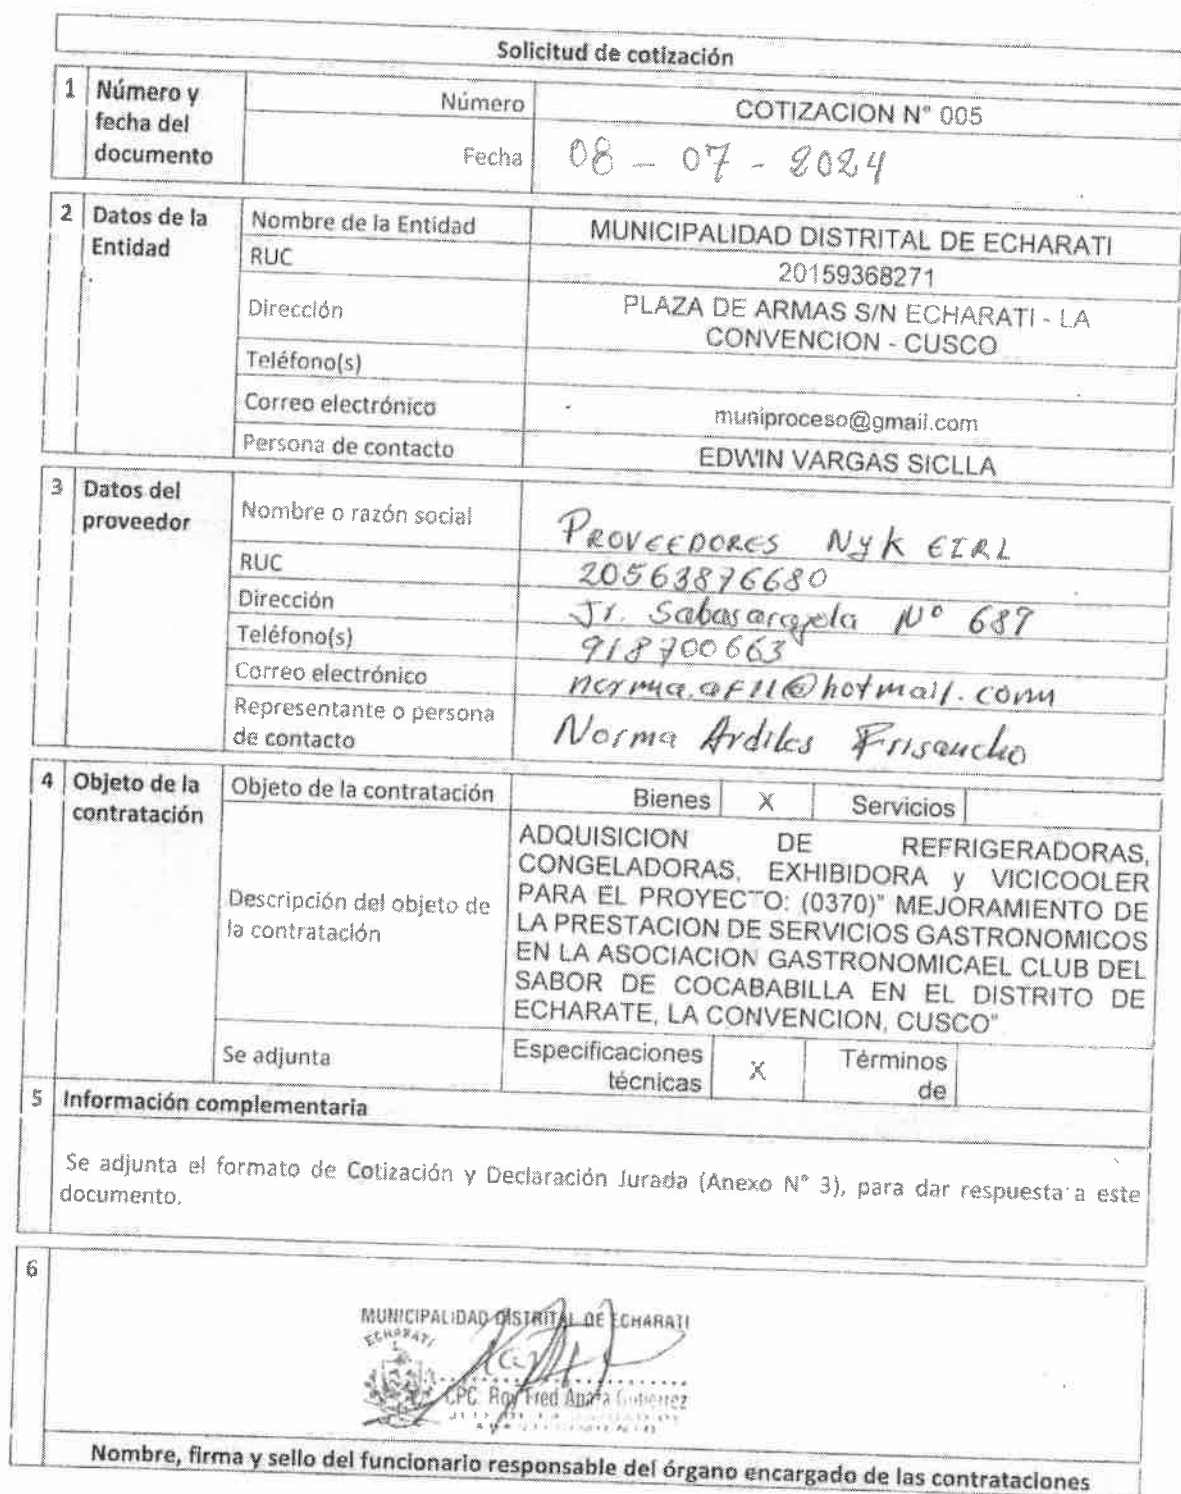 Solicitud de cotización
1 Número y fecha del documento
Número COTIZACION N° 005
Fecha 08 - 07 - 2024
2 Datos de la Entidad
Nombre de la Entidad MUNICIPALIDAD DISTRITAL DE ECHARATI
RUC 20159368271
Dirección PLAZA DE ARMAS S/N ECHARATI - LA
CONVENCION - CUSCO
Teléfono(s)
Correo electrónico muniproceso@gmail.com
Persona de contacto EDWIN VARGAS SICLLA
3 Datos del proveedor
Nombre o razón social PROVEEDORES NYK EIRL
RUC 20563876680
Dirección Jr. N° 687
Teléfono(s) 918700663
Correo electrónico norma.af11@hotmail.com
Representante o persona
de contacto Norma Ardiles Frisancho
4 Objeto de la contratación
Objeto de la contratación Bienes X Servicios
Descripción del objeto de
la contratación
ADQUISICION DE REFRIGERADORAS,
CONGELADORAS, EXHIBIDORA y VICICOOLER
PARA EL PROYECTO: (0370)" MEJORAMIENTO DE
LA PRESTACION DE SERVICIOS GASTRONOMICOS
EN LA ASOCIACION GASTRONOMICAEL CLUB DEL
SABOR DE COCABABILLA EN EL DISTRITO DE
ECHARATE, LA CONVENCION, CUSCO"
Se adjunta Especificaciones
técnicas X Términos
de
5 Información complementaria
Se adjunta el formato de Cotización y Declaración Jurada (Anexo N° 3), para dar respuesta a este
documento.
6
MUNICIPALIDAD DISTRITAL DE ECHARATI
ECHARATI
CPC. Roy Fred Apaza Gutierrez
Nombre, firma y sello del funcionario responsable del órgano encargado de las contrataciones